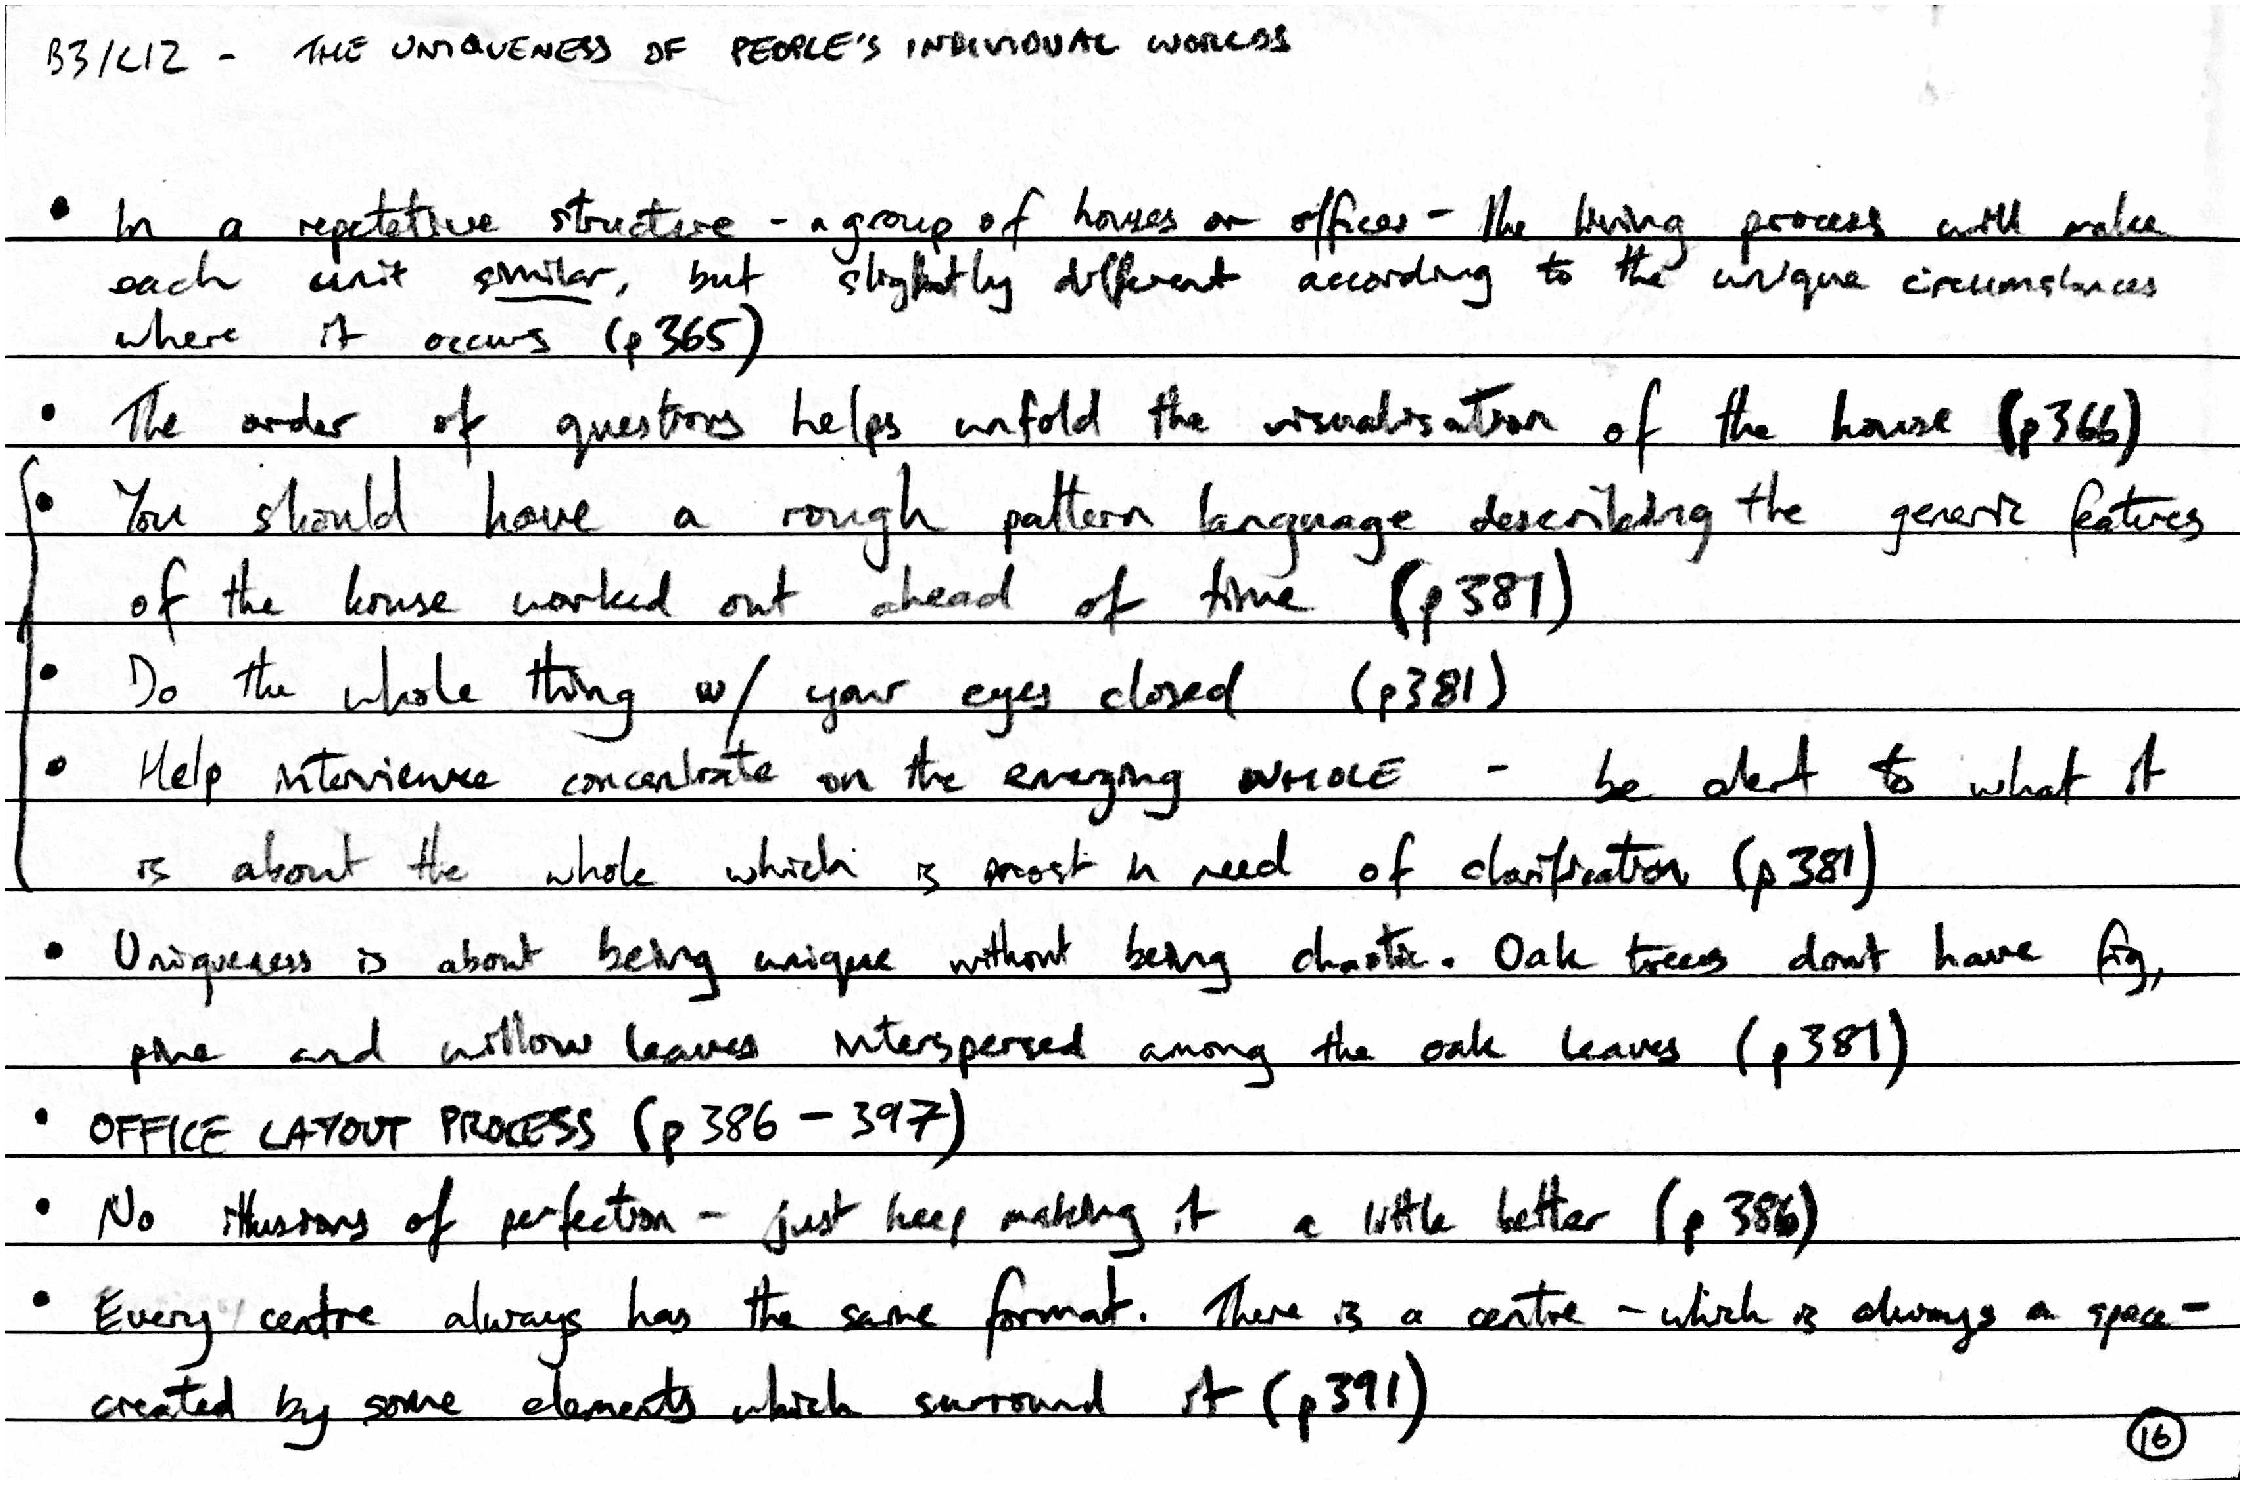 B3/C12 - THE UNIQUENESS OF PEOPLE'S INDIVIDUAL WORLDS
• In a repetetive structure - a group of houses or offices - the living process will make
each unit similar, but slightly different according to the unique circumstances
where it occurs (p365)
• The order of questions helps unfold the visualisation of the house (p366)
• You should have a rough pattern language describing the generic features
of the house worked out ahead of time (p381)
• Do the whole thing w/ your eyes closed (p381)
• Help interviewee concentrate on the emerging WHOLE - be alert to what it
is about the whole which is most in need of clarification (p381)
• Uniqueness is about being unique without being chaotic. Oak trees dont have fig,
pine and willow leaves interspersed among the oak leaves (p381)
• OFFICE LAYOUT PROCESS (p386 - 397)
• No illusions of perfection - just keep making it a little better (p386)
• Every centre always has the same format. There is a centre - which is always a space -
created by some elements which surround it (p391)
16